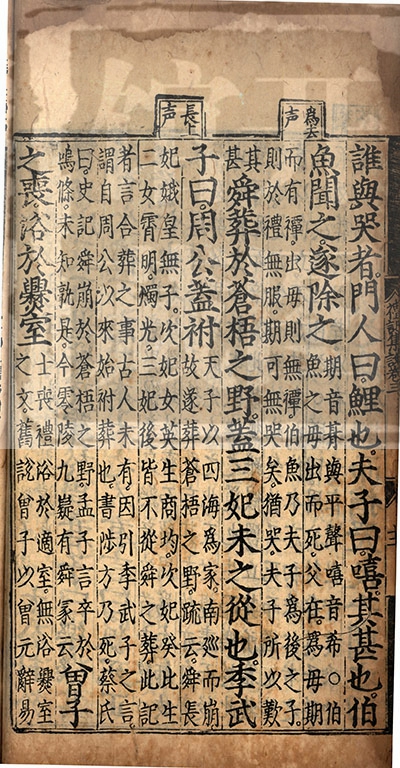 爲去
声
長上
声
誰與哭者門人曰鯉也夫子曰嘻其甚也伯
魚聞之遂除之
期音朞與平聲嘻音希○伯
魚之母出而死父在爲母期
而有禫出母則無禫伯魚乃夫子爲後之子
則於禮無服期可無哭矣猶哭夫子所以歎
其
甚
舜葬於蒼梧之野蓋三妃未之從也季武
子曰周公蓋祔
天子以四海爲家南廵而崩
故遂葬蒼梧之野疏云舜長
妃娥皇無子次妃女英生商均次妃癸比生
二女霄明燭光三妃後皆不從舜之葬此記
者言合葬之事古人未有因引季武子之言
謂自周公以來始祔葬也書陟方乃死蔡氏
曰史記舜崩於蒼梧之野孟子言卒於
鳴條未知孰是今零陵九嶷有舜冢云
曾子
之喪浴於爨室
士喪禮浴於適室無浴爨室
之文舊說曾子以曾元辭易